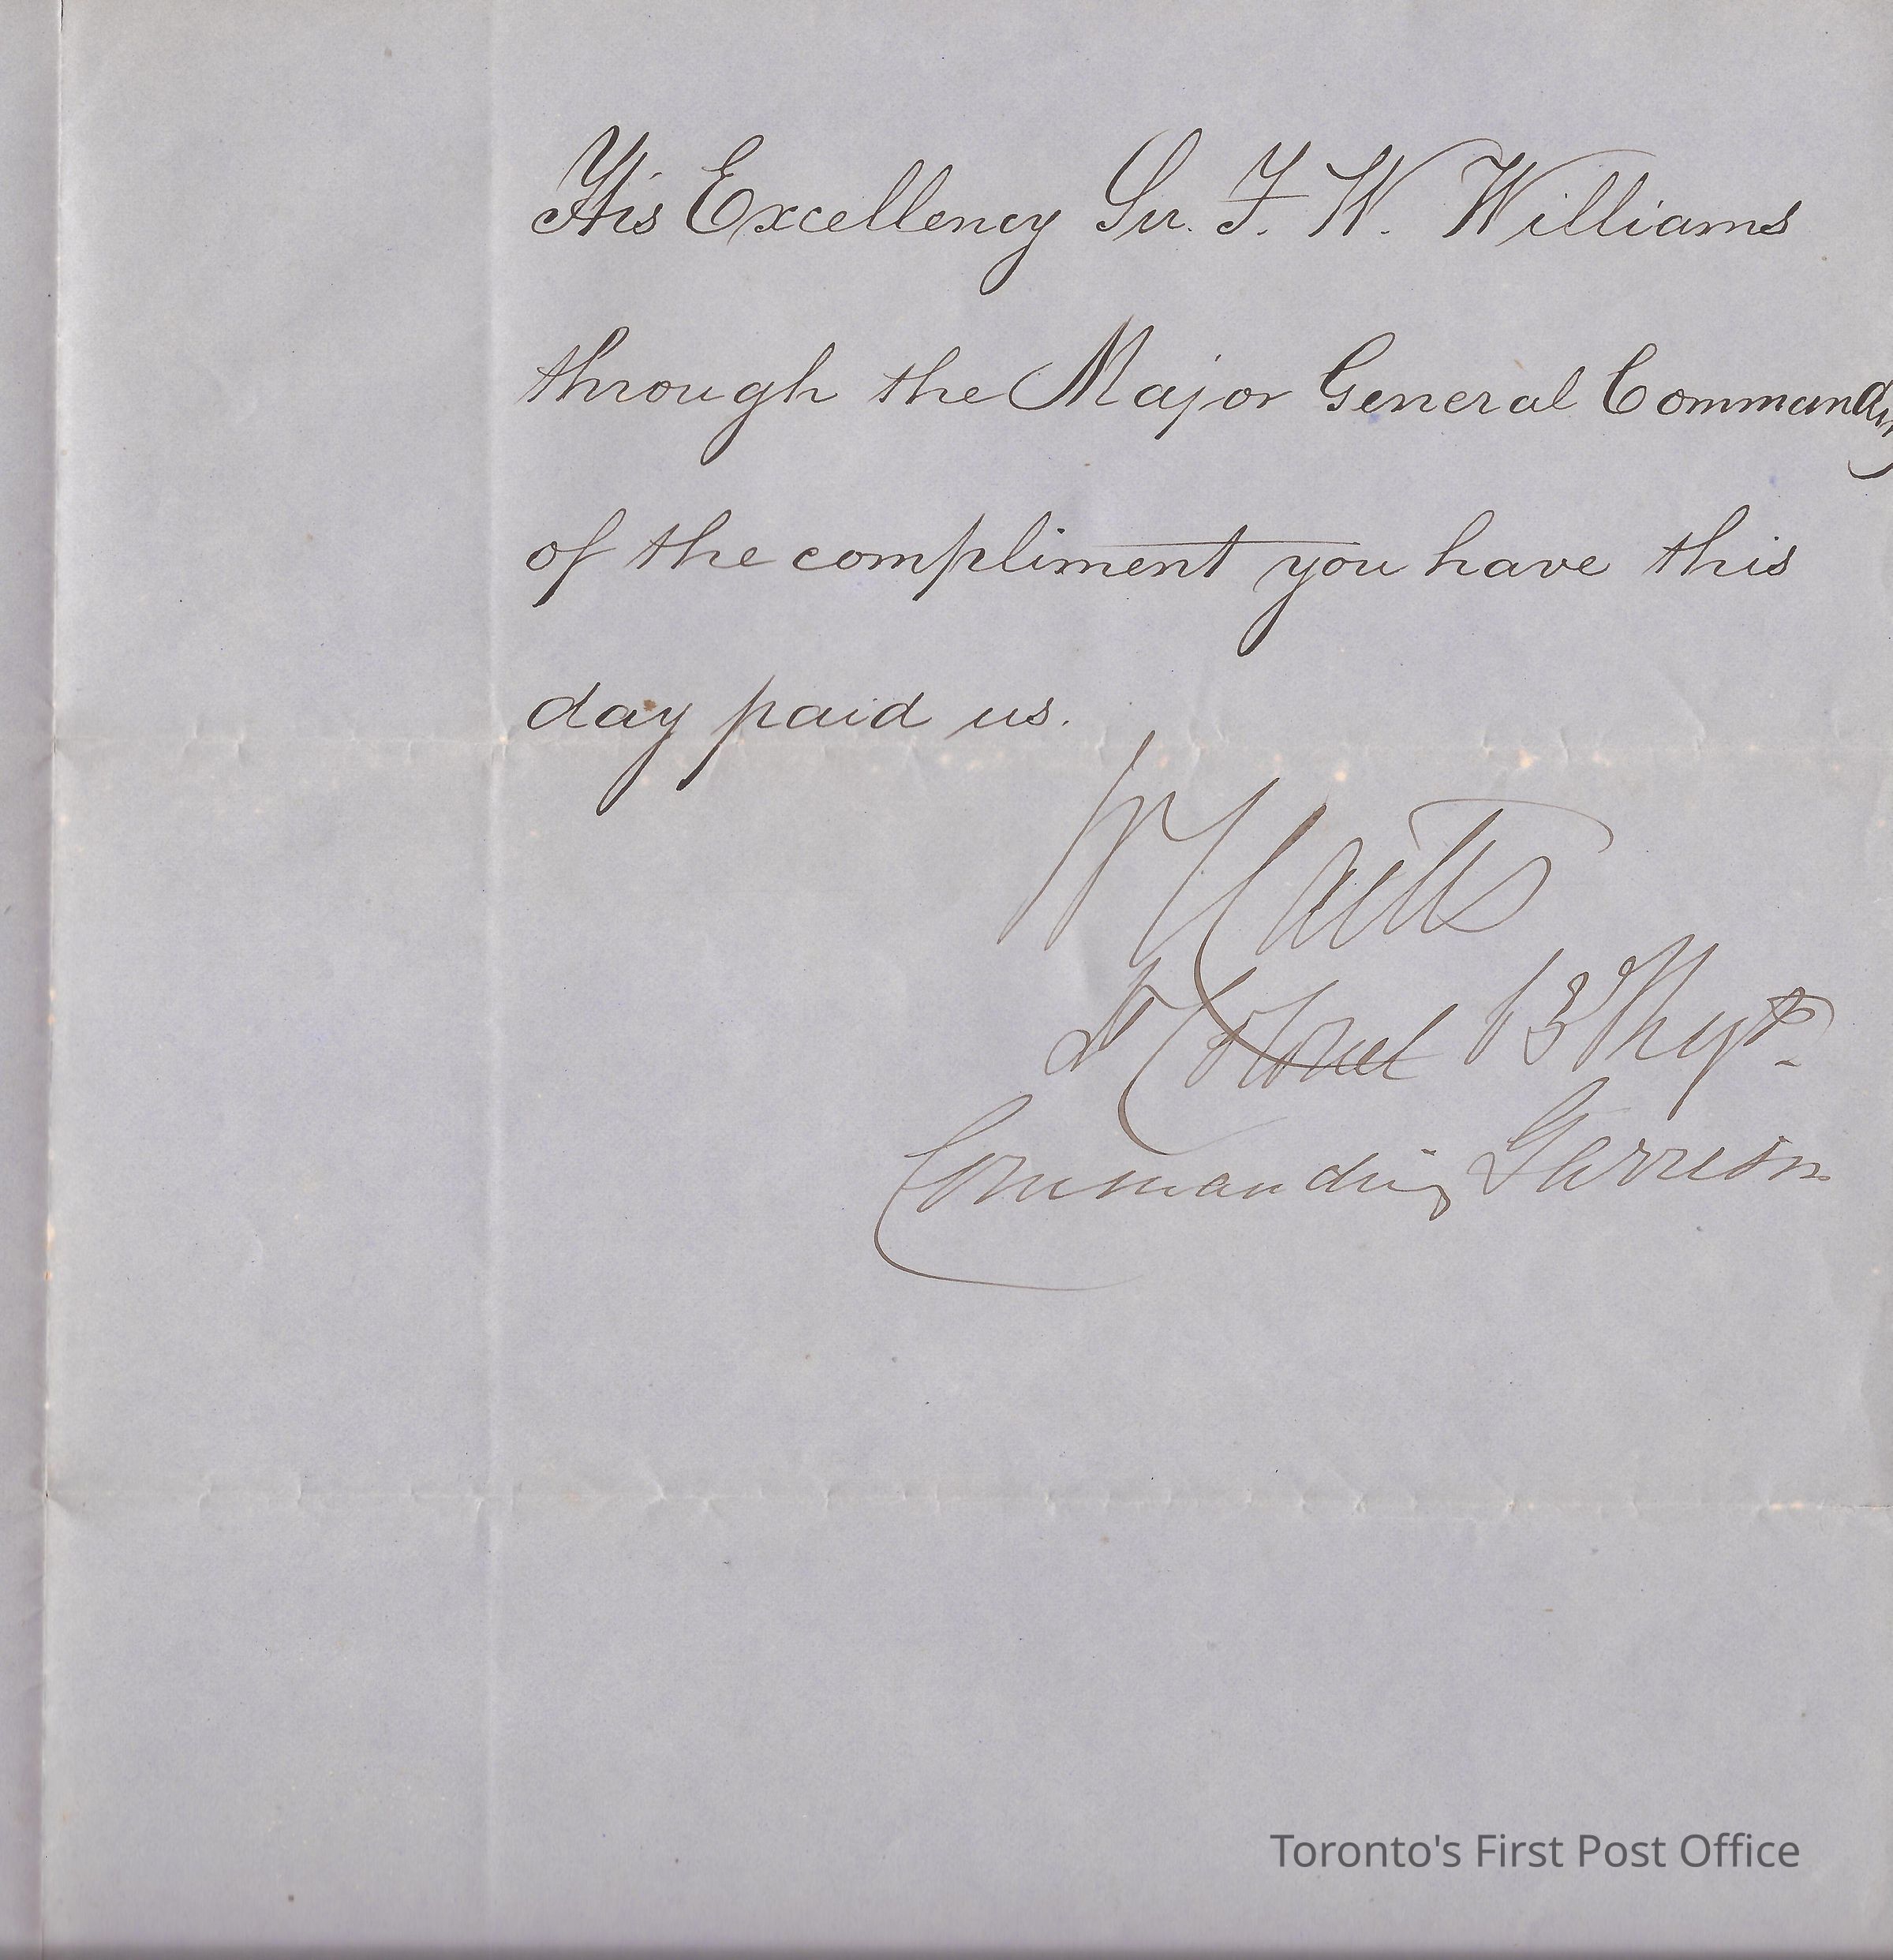 His Excellency Sir. F. W. Williams
through the Major General Commanding
of the compliment you have this
day paid us.
Lt Colonel 13 Regt.
Commanding Garrison
Toronto's First Post Office